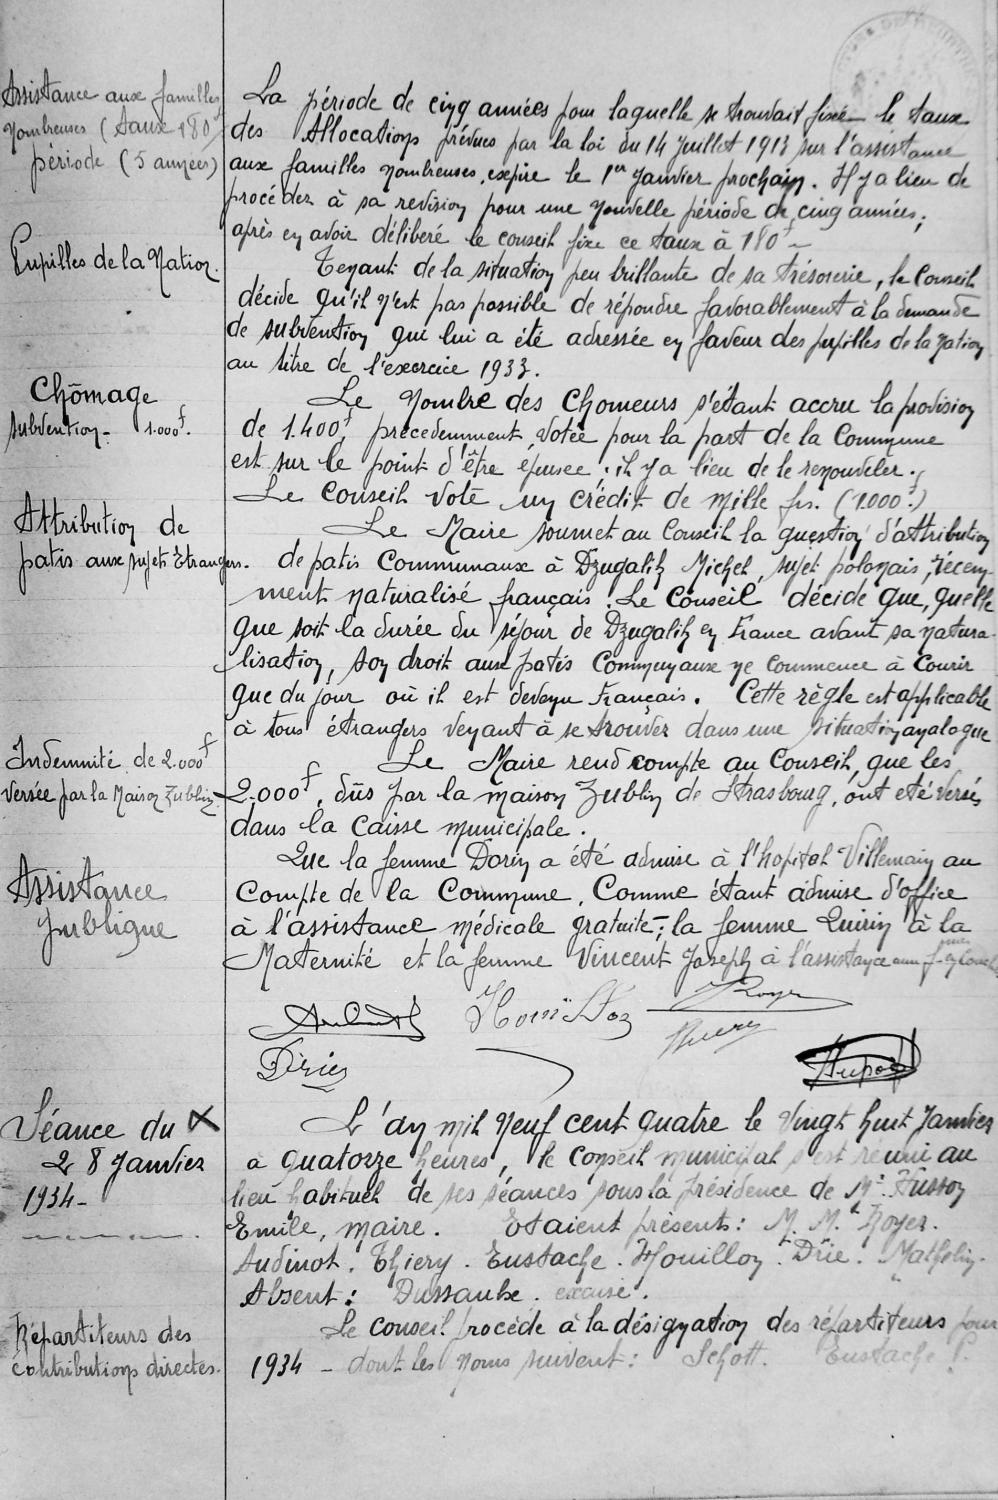 Assistance aux familles
nombreuses (taux 180f
période (5 années)
La période de cinq années pour laquelle se trouvait fixée le taux
des Allocations prévues par la loi du 14 juillet 1913 sur l'assistance
aux familles nombreuses, expire le 1er janvier prochain. Il y a lieu de
procéder à sa revision pour une nouvelle période de cinq années;
après en avoir délibéré le conseil fixe ce taux à 180f
Pupilles de la Nation.
Tenant de la situation peu brillante de sa trésorerie, le Conseil
décide qu'il n'est pas possible de répondre favorablement à la demande
de subvention qui lui a été adressée en faveur des pupilles de la nation
au titre de l'exercice 1933.
Chômage
subvention - 1.000f.
Le nombre des chomeurs s'étant accru la provision
de 1.400f, precedemment votée pour la part de la Commune
est sur le point d'être épuisée. il y a lieu de le renouveler.
Le Conseil vote un crédit de mille frs. (1.000f)
Attribution de
patis aux sujets Etrangers.
Le Maire soumet au Conseil la question d'attribution
de patis Communaux à Dzugalik Michel, sujet polonais, récem-
ment naturalisé français. Le Conseil décide que, quelle
que soit la durée du séjour de Dzugalik en France avant sa natura-
lisation, son droit aux patis communaux ne commence à courir
que du jour où il est devenu Français. Cette règle est applicable
à tous étrangers venant à se trouver dans une situation analogue
Indemnité de 2.000f
versée par la Maison Zublin
Le Maire rend compte au Conseil, que les
2.000f, dûs par la maison Zublin de Strasbourg, ont eté versés
dans la caisse municipale.
Assistance
publique
Que la femme Dorin a été admise à l'hopital Villemain au
compte de la Commune, Comme étant admise d'office
à l'assistance médicale gratuite; la femme Quirin à la
Maternité et la femme Vincent Joseph à l'assistance aux fmes en couches
Royer
Thiery
Séance du
28 Janvier
1934 -
L'an mil neuf cent quatre le vingt huit Janvier
à quatorze heures, le conseil municipal s'est réuni au
lieu habituel de ses séances sous la présidence de Mr Husson
Emile, maire. Etaient présents: M. M. Royer.
Audinot. Thiery. Eustache. Houillon. Drie. Mathelin.
Absent: Dussaulx. excusé.
Répartiteurs des
contributions directes.
Le conseil procède à la désignation des répartiteurs pour
1934 - dont les noms suivent: Schott. Eustache P.